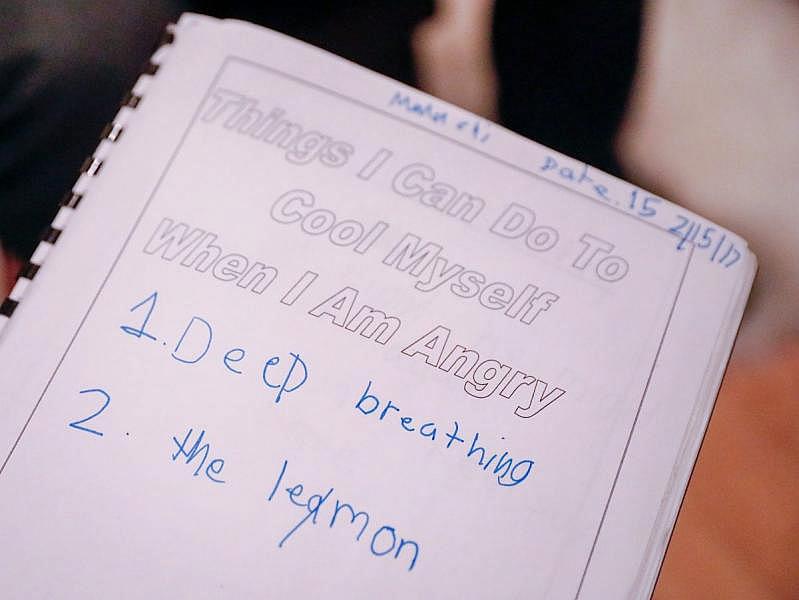 Date.
Things I Can Do To
Cool Myself
When I Am Angry
1. Deep breathing
2. the leymon